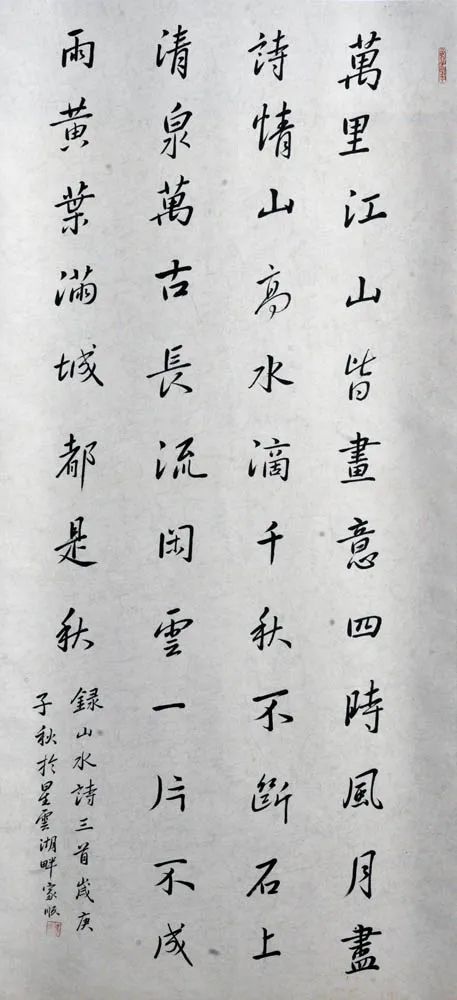 萬里江山皆畫意四時風月盡
詩情山高水滴千秋不斷石上
清泉萬古長流閑雲一片不成
雨黃葉滿城都是秋
録山水詩三首歲庚
子秋於星雲湖畔家順